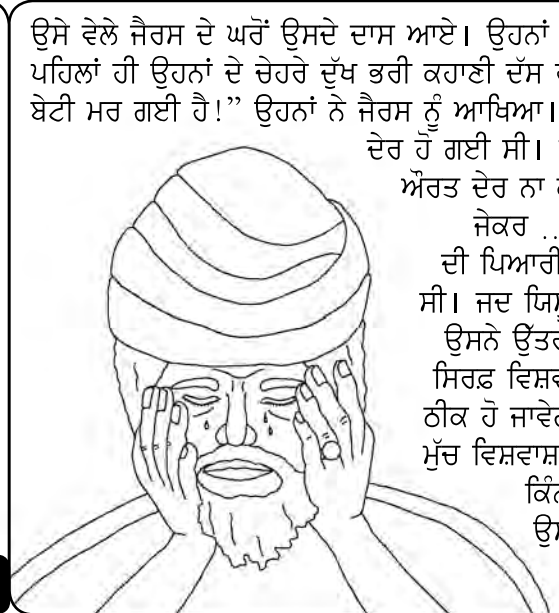 ਉਸੇ ਵੇਲੇ ਜੈਰਸ ਦੇ ਘਰੋਂ ਉਸਦੇ ਦਾਸ ਆਏ। ਉਹਨਾਂ
ਪਹਿਲਾਂ ਹੀ ਉਹਨਾਂ ਦੇ ਚੇਹਰੇ ਦੁੱਖ ਭਰੀ ਕਹਾਣੀ ਦੱਸ
ਬੇਟੀ ਮਰ ਗਈ ਹੈ!” ਉਹਨਾਂ ਨੇ ਜੈਰਸ ਨੂੰ ਆਖਿਆ।
ਦੇਰ ਹੋ ਗਈ ਸੀ।
ਔਰਤ ਦੇਰ ਨਾ
ਜੇਕਰ ..
ਦੀ ਪਿਆਰੀ
ਸੀ। ਜਦ
ਉਸਨੇ
ਸਿਰਫ਼
ਠੀਕ ਹੋ
ਮੁੱਚ